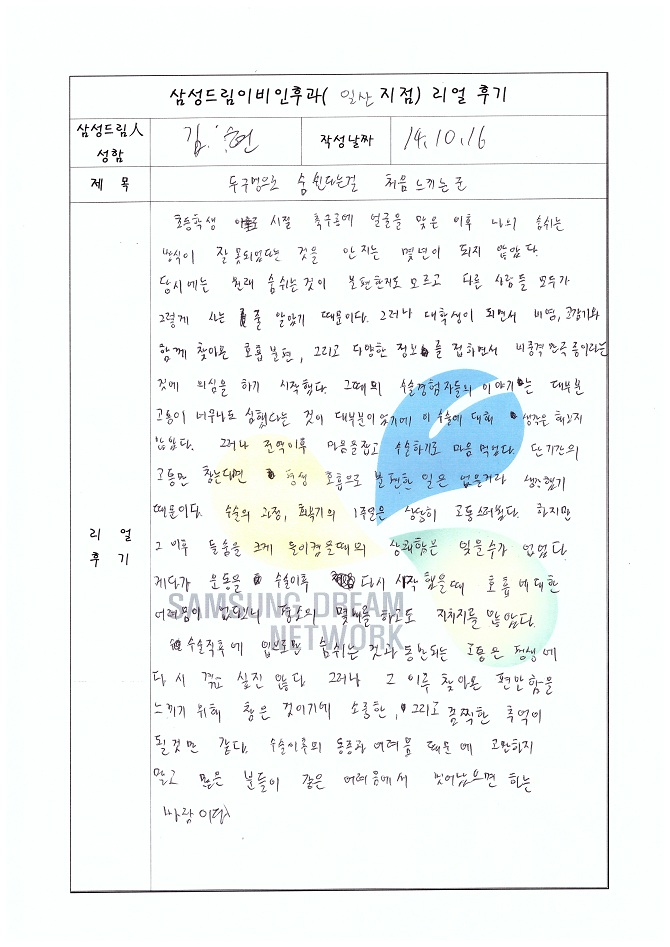 삼성드림이비인후과( 일산 지점) 리얼 후기
삼성드림人
성함
김 현
작성날짜
14.10.16
제 목
두구멍으로 숨쉰다는걸 처음 느끼는 순
리 얼
후 기
초등학생 시절 축구공에 얼굴을 맞은 이후 나의 숨쉬는
방식이 잘못되었다는 것을 안지는 몇년이 되지 않았다.
당시에는 원래 숨쉬는것이 불편한지도 모르고 다른 사람들 모두가
그렇게 사는 줄 알았기 때문이다. 그러나 대학생이 되면서 비염, 코감기와
함께 찾아온 호흡불편, 그리고 다양한 정보를 접하면서 비중격만곡증이라는
것에 의심을 하기 시작했다. 그때의 수술경험자들의 이야기는 대부분
고통이 너무나도 심했다는 것이 대부분이었기에 이 수술에 대해 생각을 해보지
않았다. 그러나 전역이후 마음을잡고 수술하기로 마음먹었다. 단기간의
고통만 참는다면 평생 호흡으로 불편한 일은 없을거라 생각했기
때문이다. 수술의 과정, 회복기의 1주일은 상당히 고통스러웠다. 하지만
그 이후 들숨을 크게 들이켰을때의 상쾌함은 잊을수가 없었다.
게다가 운동을 수술이후 다시 시작했을때 호흡에 대한
어려움이 없다보니 평소의 몇배를 하고도 지치지를 않았다.
수술직후에 입으로만 숨쉬는 것과 동반되는 고통은 평생에
다시 겪고 싶진 않다. 그러나 그 이후 찾아온 편안함을
느끼기 위해 참은 것이기에 소중한, 그리고 끔찍한 추억이
될것만 같다. 수술이후의 통증과 어려움 때문에 고민하지
말고 많은 분들이 같은 어려움에서 벗어났으면 하는
바람이다.
SAMSUNG DREAM
NETWORK